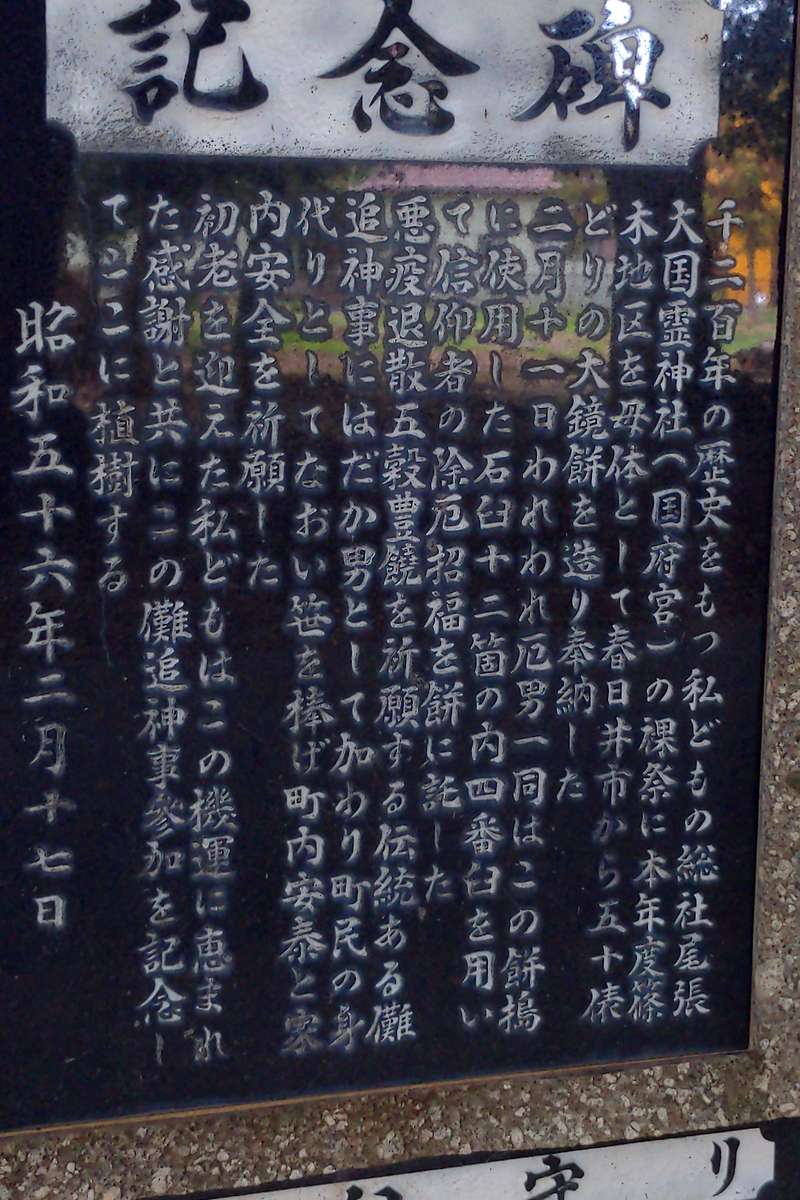 記念碑
千二百年の歴史をもつ私どもの総社尾張
大国霊神社(国府宮)の裸祭に本年度篠
木地区を母体として春日井市から五十俵
どりの大鏡餅を造り奉納した
二月十一日われわれ厄男一同はこの餅搗
に使用した石臼十二箇の内四番臼を用い
て信仰者の除厄招福を餅に託した
悪疫退散五穀豊饒を祈願する伝統ある儺
追神事にはだか男として加わり町民の身
代りとしてなおい笹を捧げ町内安泰と家
内安全を祈願した
初老を迎えた私どもはこの機運に恵まれ
た感謝と共にこの儺追神事参加を記念し
てここに植樹する
昭和五十六年二月十七日